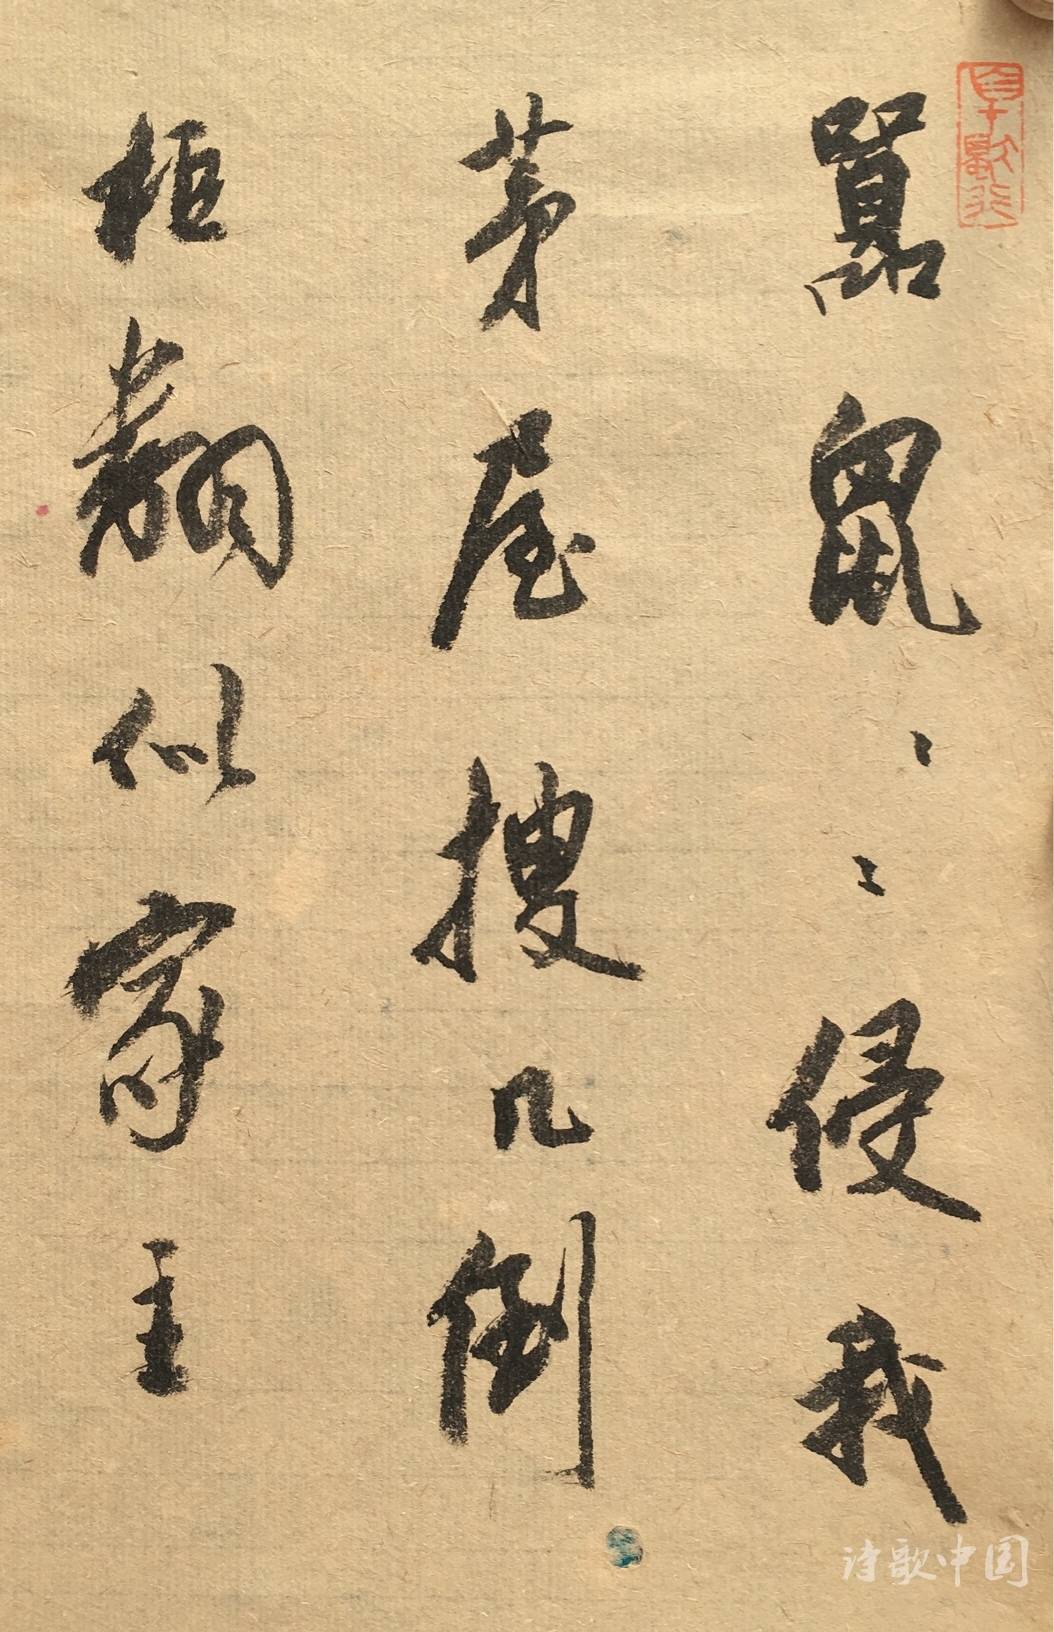 嚚鼠〻〻侵我
茅屋搜几倒
柜翻似家主
诗歌中国